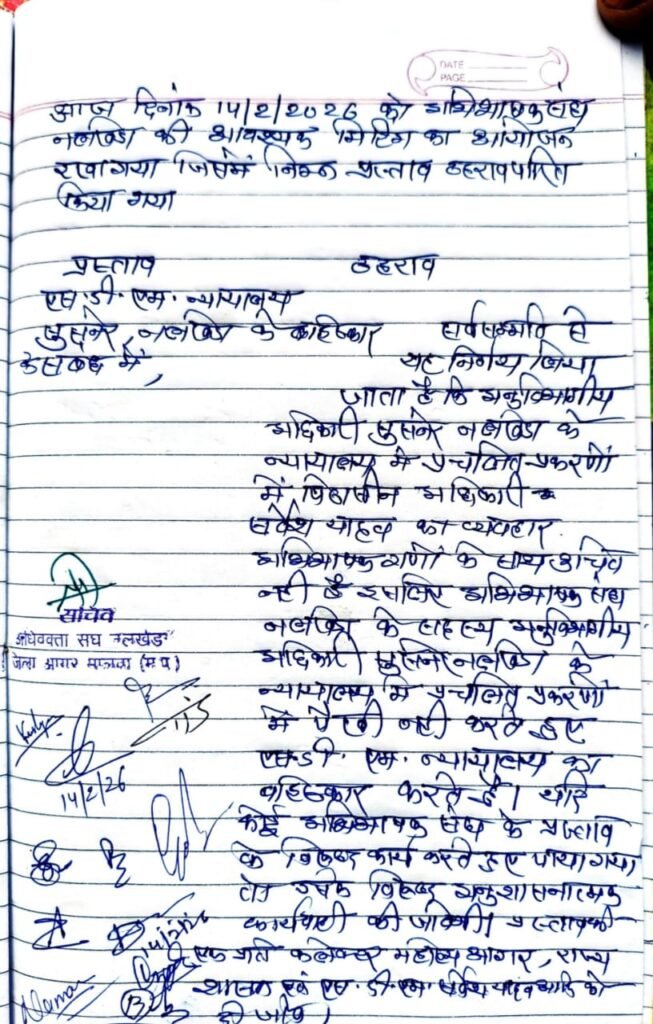 DATE
PAGE
आज दिनांक 14/2/2026 को अभिभाषक संघ
नलखेडा की आवश्यक मिटिंग का आयोजन
रखा गया जिसमें निम्न प्रस्ताव ठहराव पारित
किया गया
प्रस्ताव ठहराव
एस.डी.एम. न्यायालय
सुसनेर, नलखेडा के बहिष्कार सर्वसम्मति से
के संबंध में, यह निर्णय लिया
जाता है कि अनुविभागीय
अधिकारी सुसनेर नलखेडा के
न्यायालय में प्रचलित प्रकरणों
में पिठासीन अधिकारी
सर्वेश यादव का व्यवहार
अभिभाषक गणों के साथ उचित
नही है इसलिए अभिभाषक संघ
नलखेडा के सदस्य अनुविभागीय
अधिकारी सुसनेर नलखेडा के
न्यायालय में प्रचलित प्रकरणों
में पैरवी नही करते हुए
एस.डी.एम. न्यायालय का
बहिष्कार करते है। यदि
कोई अभिभाषक संघ के प्रस्ताव
के विरुद्ध कार्य करते हुए पाया गया
तो उसके विरुद्ध अनुशासनात्मक
कार्यवाही की जावेगी। प्रस्ताव की
एक प्रति कलेक्टर महोदय आगर, राज्य
शासन एवं एस.डी.एम. सर्वेश यादव आदि को
दी जावे।
सचिव
अधिवक्ता संघ नलखेडा
जिला आगर मालवा (म.प्र.)
14/2/26